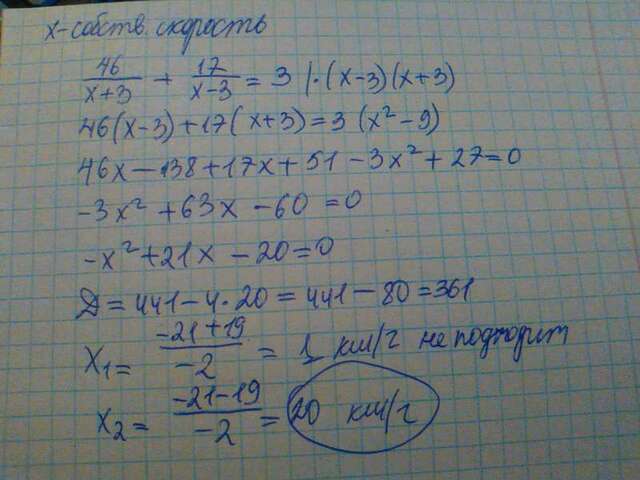 x-собств. скорость
46/(x+3) + 17/(x-3) = 3 |·(x-3)(x+3)
46(x-3)+17(x+3)=3(x²-9)
46x-138+17x+51-3x²+27=0
-3x²+63x-60=0
-x²+21x-20=0
D=441-4·20=441-80=361
x₁= (-21+19)/(-2) = 1 км/г не подходит
x₂= (-21-19)/(-2) = 20 км/г